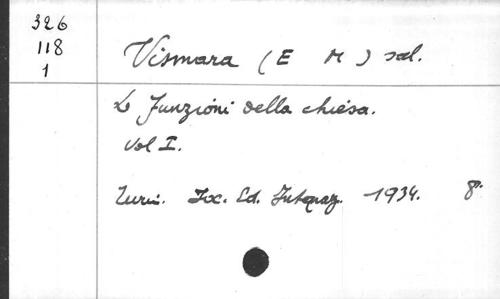 326
118
1
Vismara (E M) sal.
Le funzioni della chiesa.
Vol I.
Turin. Soc. Ed. Internaz. 1934. 8º.